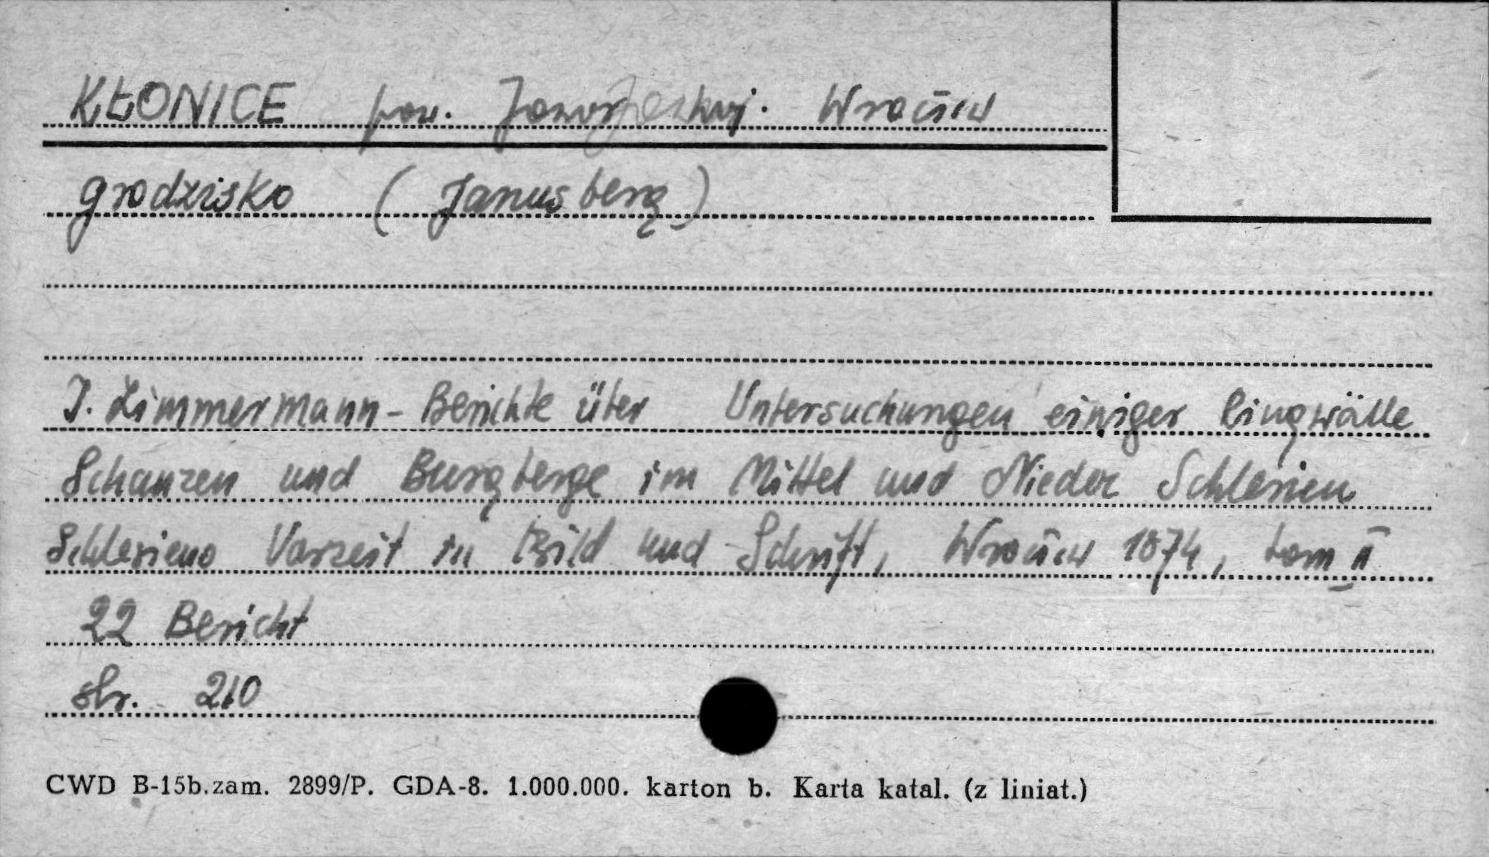 KŁONICE pow. Jawor woj. Wrocław
grodzisko (Janusberg)
J. Zimmermann - Berichte über Untersuchungen einiger Ringwälle
Schanzen und Burgberge im Mittel und Nieder Schlesien
Schlesiens Vorzeit in Bild und Schrift, Wrocław 1874, tom II
22 Bericht
str. 210
CWD B-15b.zam. 2899/P. GDA-8. 1.000.000. karton b. Karta katal. (z liniat.)